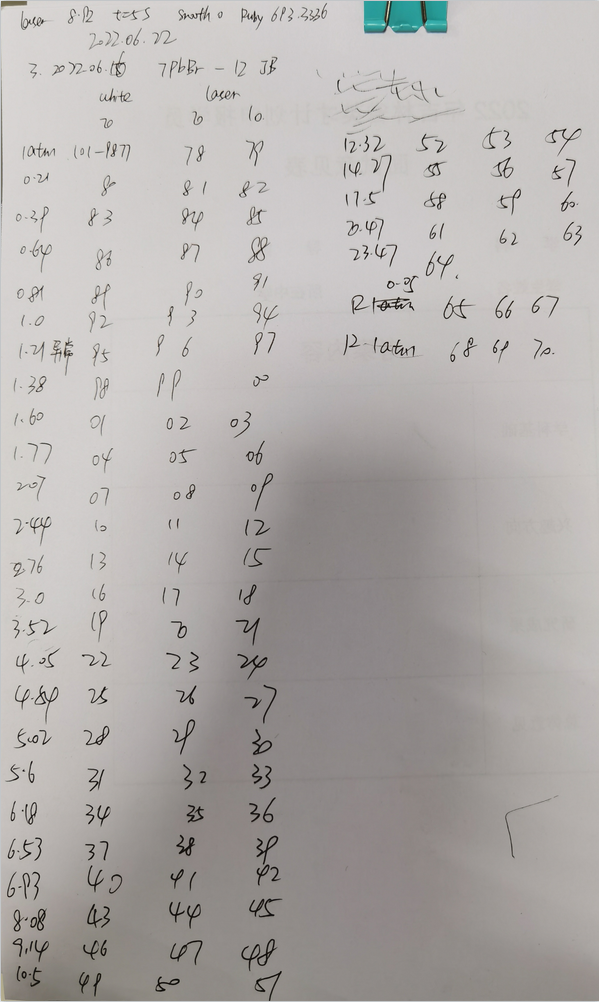 laser 8.12 t=5s smooth 0 Ruby 693.3336
2022.06.22
3. 2022.06.18 7PbBr-12 JB
white laser
20 20 10
1atm 101-9877 78 79
0.21 80 81 82
0.39 83 84 85
0.64 86 87 88
0.81 89 90 91
1.0 92 93 94
1.21 异常 95 96 97
1.38 98 99 00
1.60 01 02 03
1.77 04 05 06
2.07 07 08 09
2.44 10 11 12
2.76 13 14 15
3.0 16 17 18
3.52 19 20 21
4.05 22 23 24
4.84 25 26 27
5.02 28 29 30
5.6 31 32 33
6.18 34 35 36
6.53 37 38 39
6.93 40 41 42
8.08 43 44 45
9.14 46 47 48
10.5 49 50 51
12.32 52 53 54
14.27 55 56 57
17.5 58 59 60
20.47 61 62 63
23.47 64.
0.05
R-1atm 65 66 67
R-1atm 68 69 70.